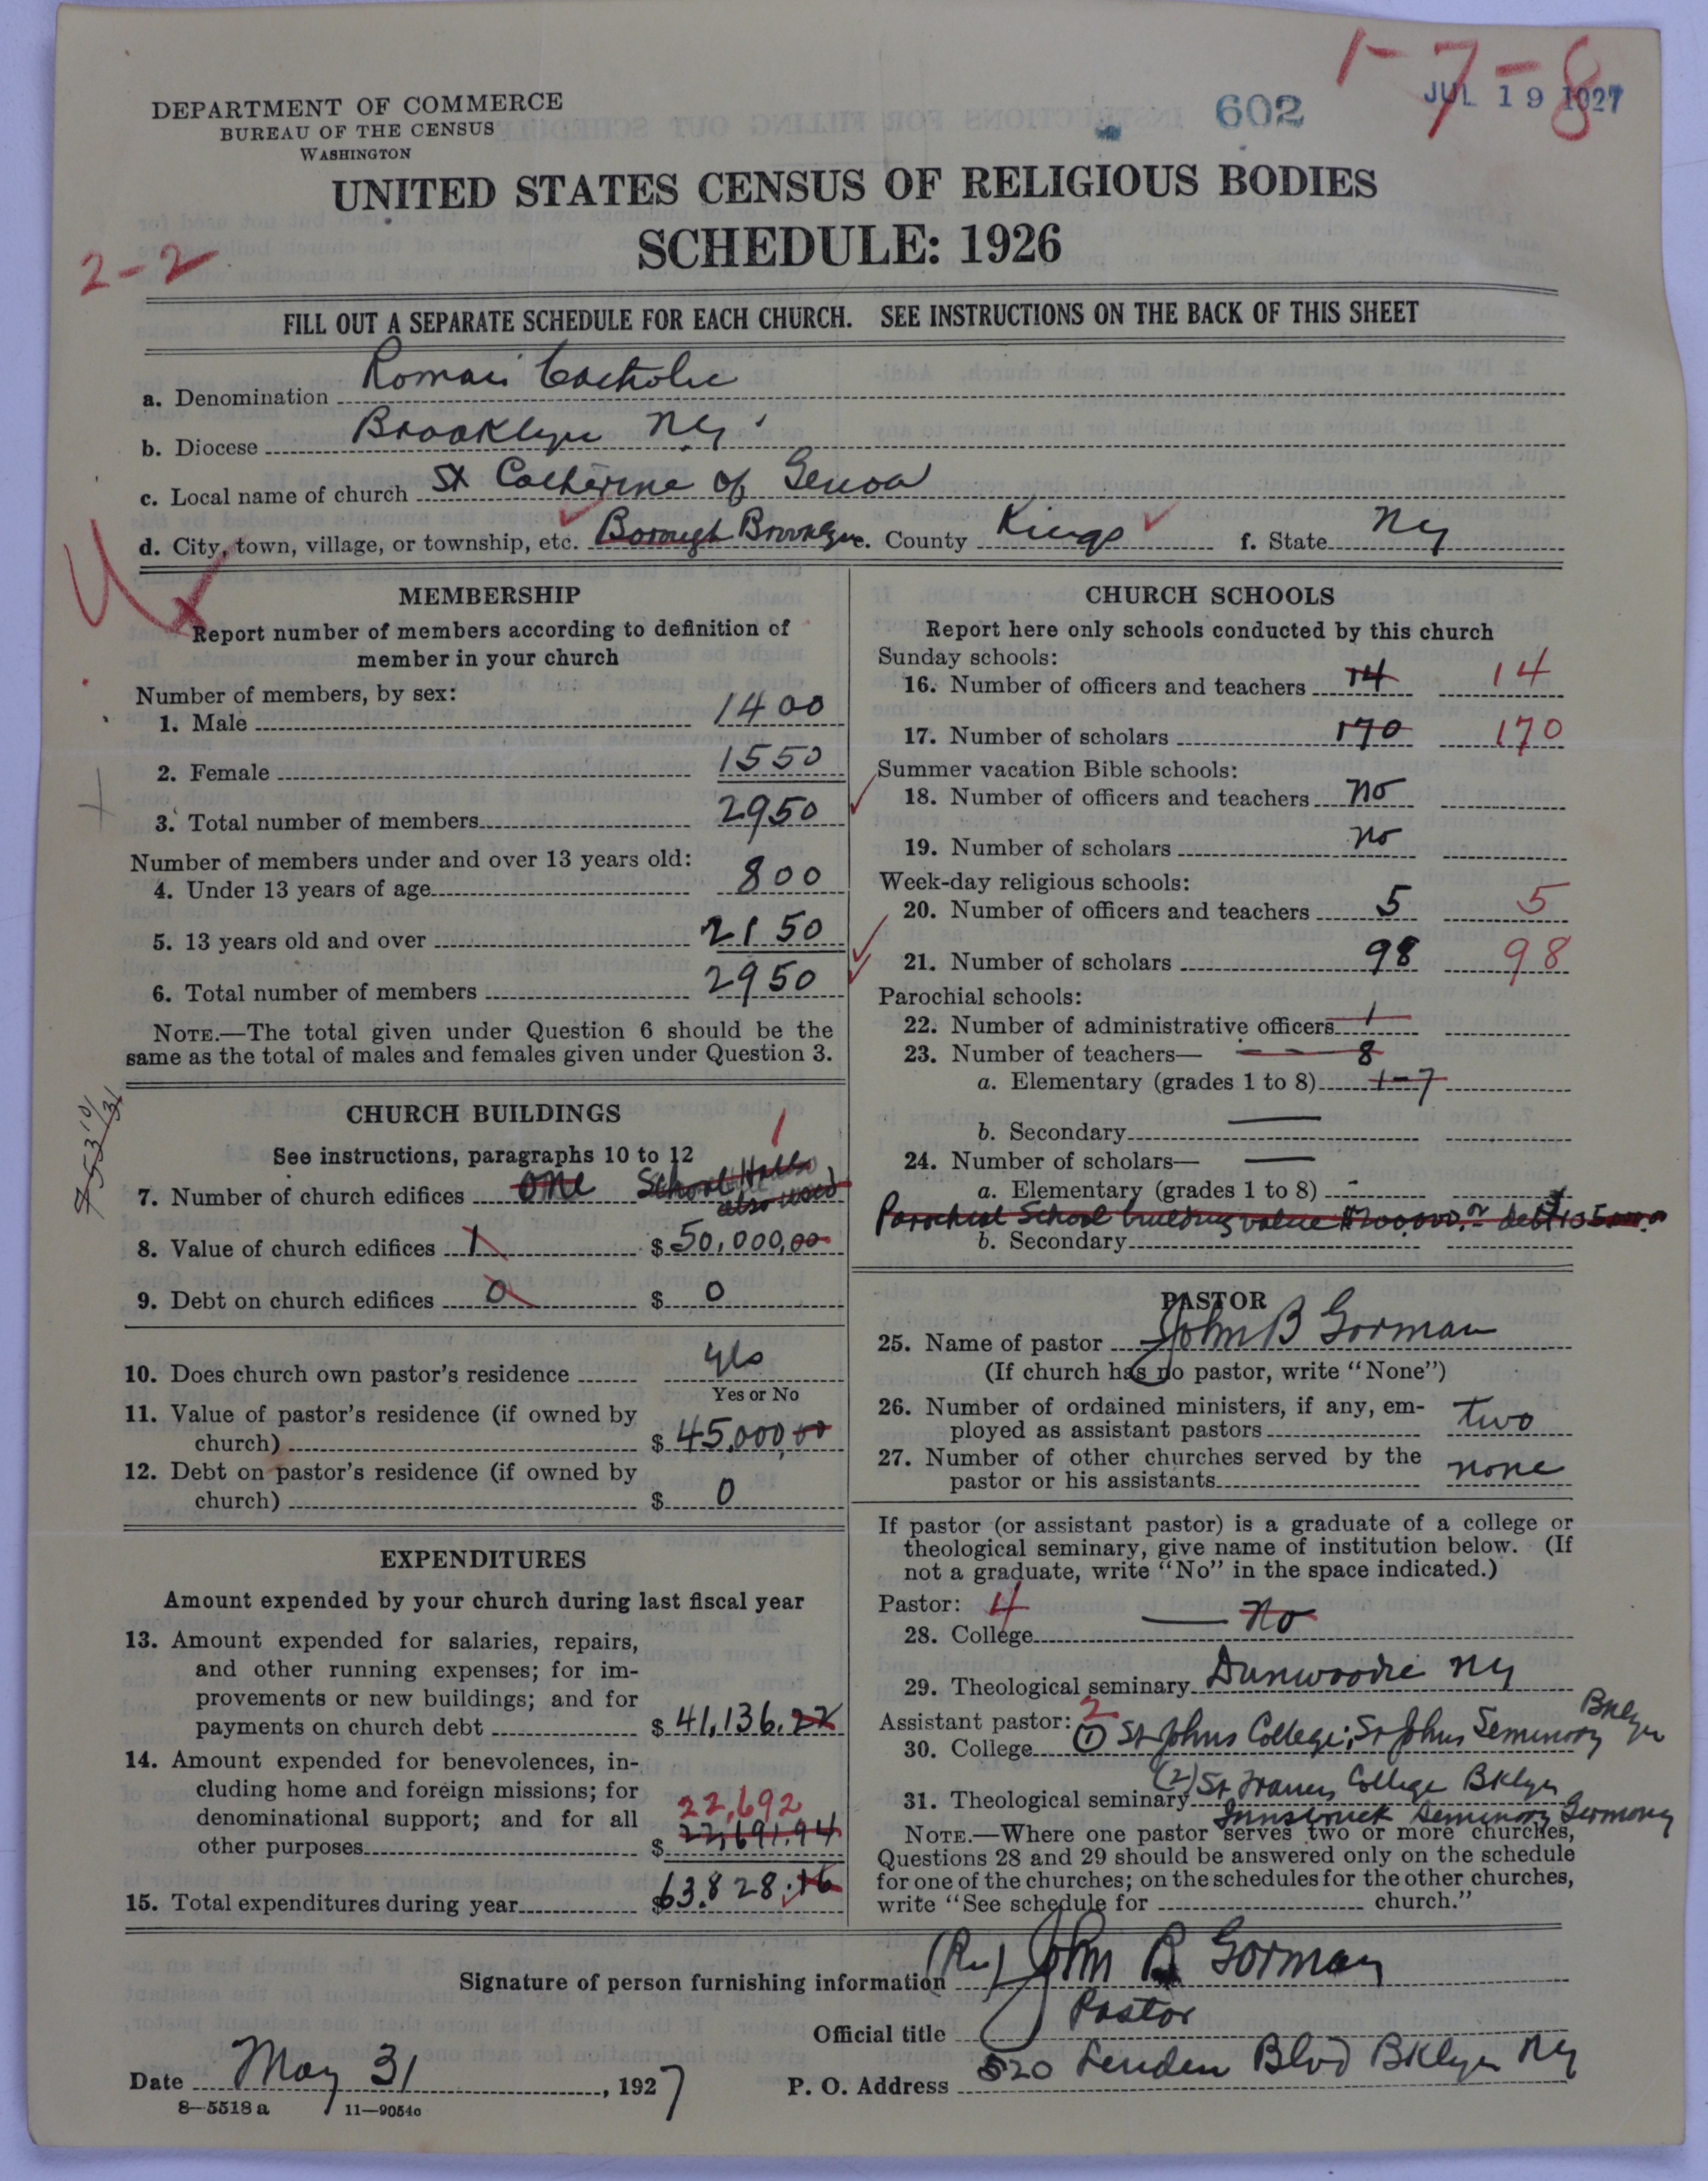 1-7-8
DEPARTMENT OF COMMERCE
BUREAU OF THE CENSUS
WASHINGTON
602
JUL 19 1927
UNITED STATES CENSUS OF RELIGIOUS BODIES
SCHEDULE: 1926
2-2
FILL OUT A SEPARATE SCHEDULE FOR EACH CHURCH. SEE INSTRUCTIONS ON THE BACK OF THIS SHEET
a. Denomination Roman Catholic
b. Diocese Brooklyn NY
c. Local name of church St Catherine of Genoa
d. City, town, village, or township, etc. Borough Brooklyn e. County Kings f. State NY
MEMBERSHIP
Report number of members according to definition of
member in your church
Number of members, by sex:
1. Male 1400
2. Female 1550
3. Total number of members 2950
Number of members under and over 13 years old:
4. Under 13 years of age 800
5. 13 years old and over 2150
6. Total number of members 2950
NOTE.—The total given under Question 6 should be the
same as the total of males and females given under Question 3.
CHURCH BUILDINGS
See instructions, paragraphs 10 to 12
1
7. Number of church edifices one School Hall
also used
8. Value of church edifices 1 $ 50,000,00
9. Debt on church edifices 0 $ 0
10. Does church own pastor's residence yes
Yes or No
11. Value of pastor's residence (if owned by
church) $ 45,000,00
12. Debt on pastor's residence (if owned by
church) $ 0
EXPENDITURES
Amount expended by your church during last fiscal year
13. Amount expended for salaries, repairs,
and other running expenses; for im-
provements or new buildings; and for
payments on church debt $ 41,136.22
14. Amount expended for benevolences, in-
cluding home and foreign missions; for
denominational support; and for all
22,692
other purposes $ 22,691.94
15. Total expenditures during year $63,828.16
CHURCH SCHOOLS
Report here only schools conducted by this church
Sunday schools:
16. Number of officers and teachers 14 14
17. Number of scholars 170 170
Summer vacation Bible schools:
18. Number of officers and teachers no
19. Number of scholars no
Week-day religious schools:
20. Number of officers and teachers 5 5
21. Number of scholars 98 98
Parochial schools:
22. Number of administrative officers 1
23. Number of teachers— 8
a. Elementary (grades 1 to 8) 1-7
b. Secondary
24. Number of scholars—
a. Elementary (grades 1 to 8)
Parochial School building value $200,000.00 debt $105,000.00
b. Secondary
PASTOR
25. Name of pastor John B Gorman
(If church has no pastor, write "None")
26. Number of ordained ministers, if any, em-
ployed as assistant pastors two
27. Number of other churches served by the
pastor or his assistants none
If pastor (or assistant pastor) is a graduate of a college or
theological seminary, give name of institution below. (If
not a graduate, write "No" in the space indicated.)
Pastor: 4
28. College — No
29. Theological seminary Dunwoodie NY
Assistant pastor: 2
30. College (1) St Johns College; St Johns Seminary Bklyn
31. Theological seminary (2) St Francis College Bklyn
Innsbruck Seminary Germany
NOTE.—Where one pastor serves two or more churches,
Questions 28 and 29 should be answered only on the schedule
for one of the churches; on the schedules for the other churches,
write "See schedule for church."
Signature of person furnishing information (Rev) John B Gorman
Official title Pastor
Date May 31, 1927 P. O. Address 520 Linden Blvd Bklyn NY
8—5518 a 11—9054c